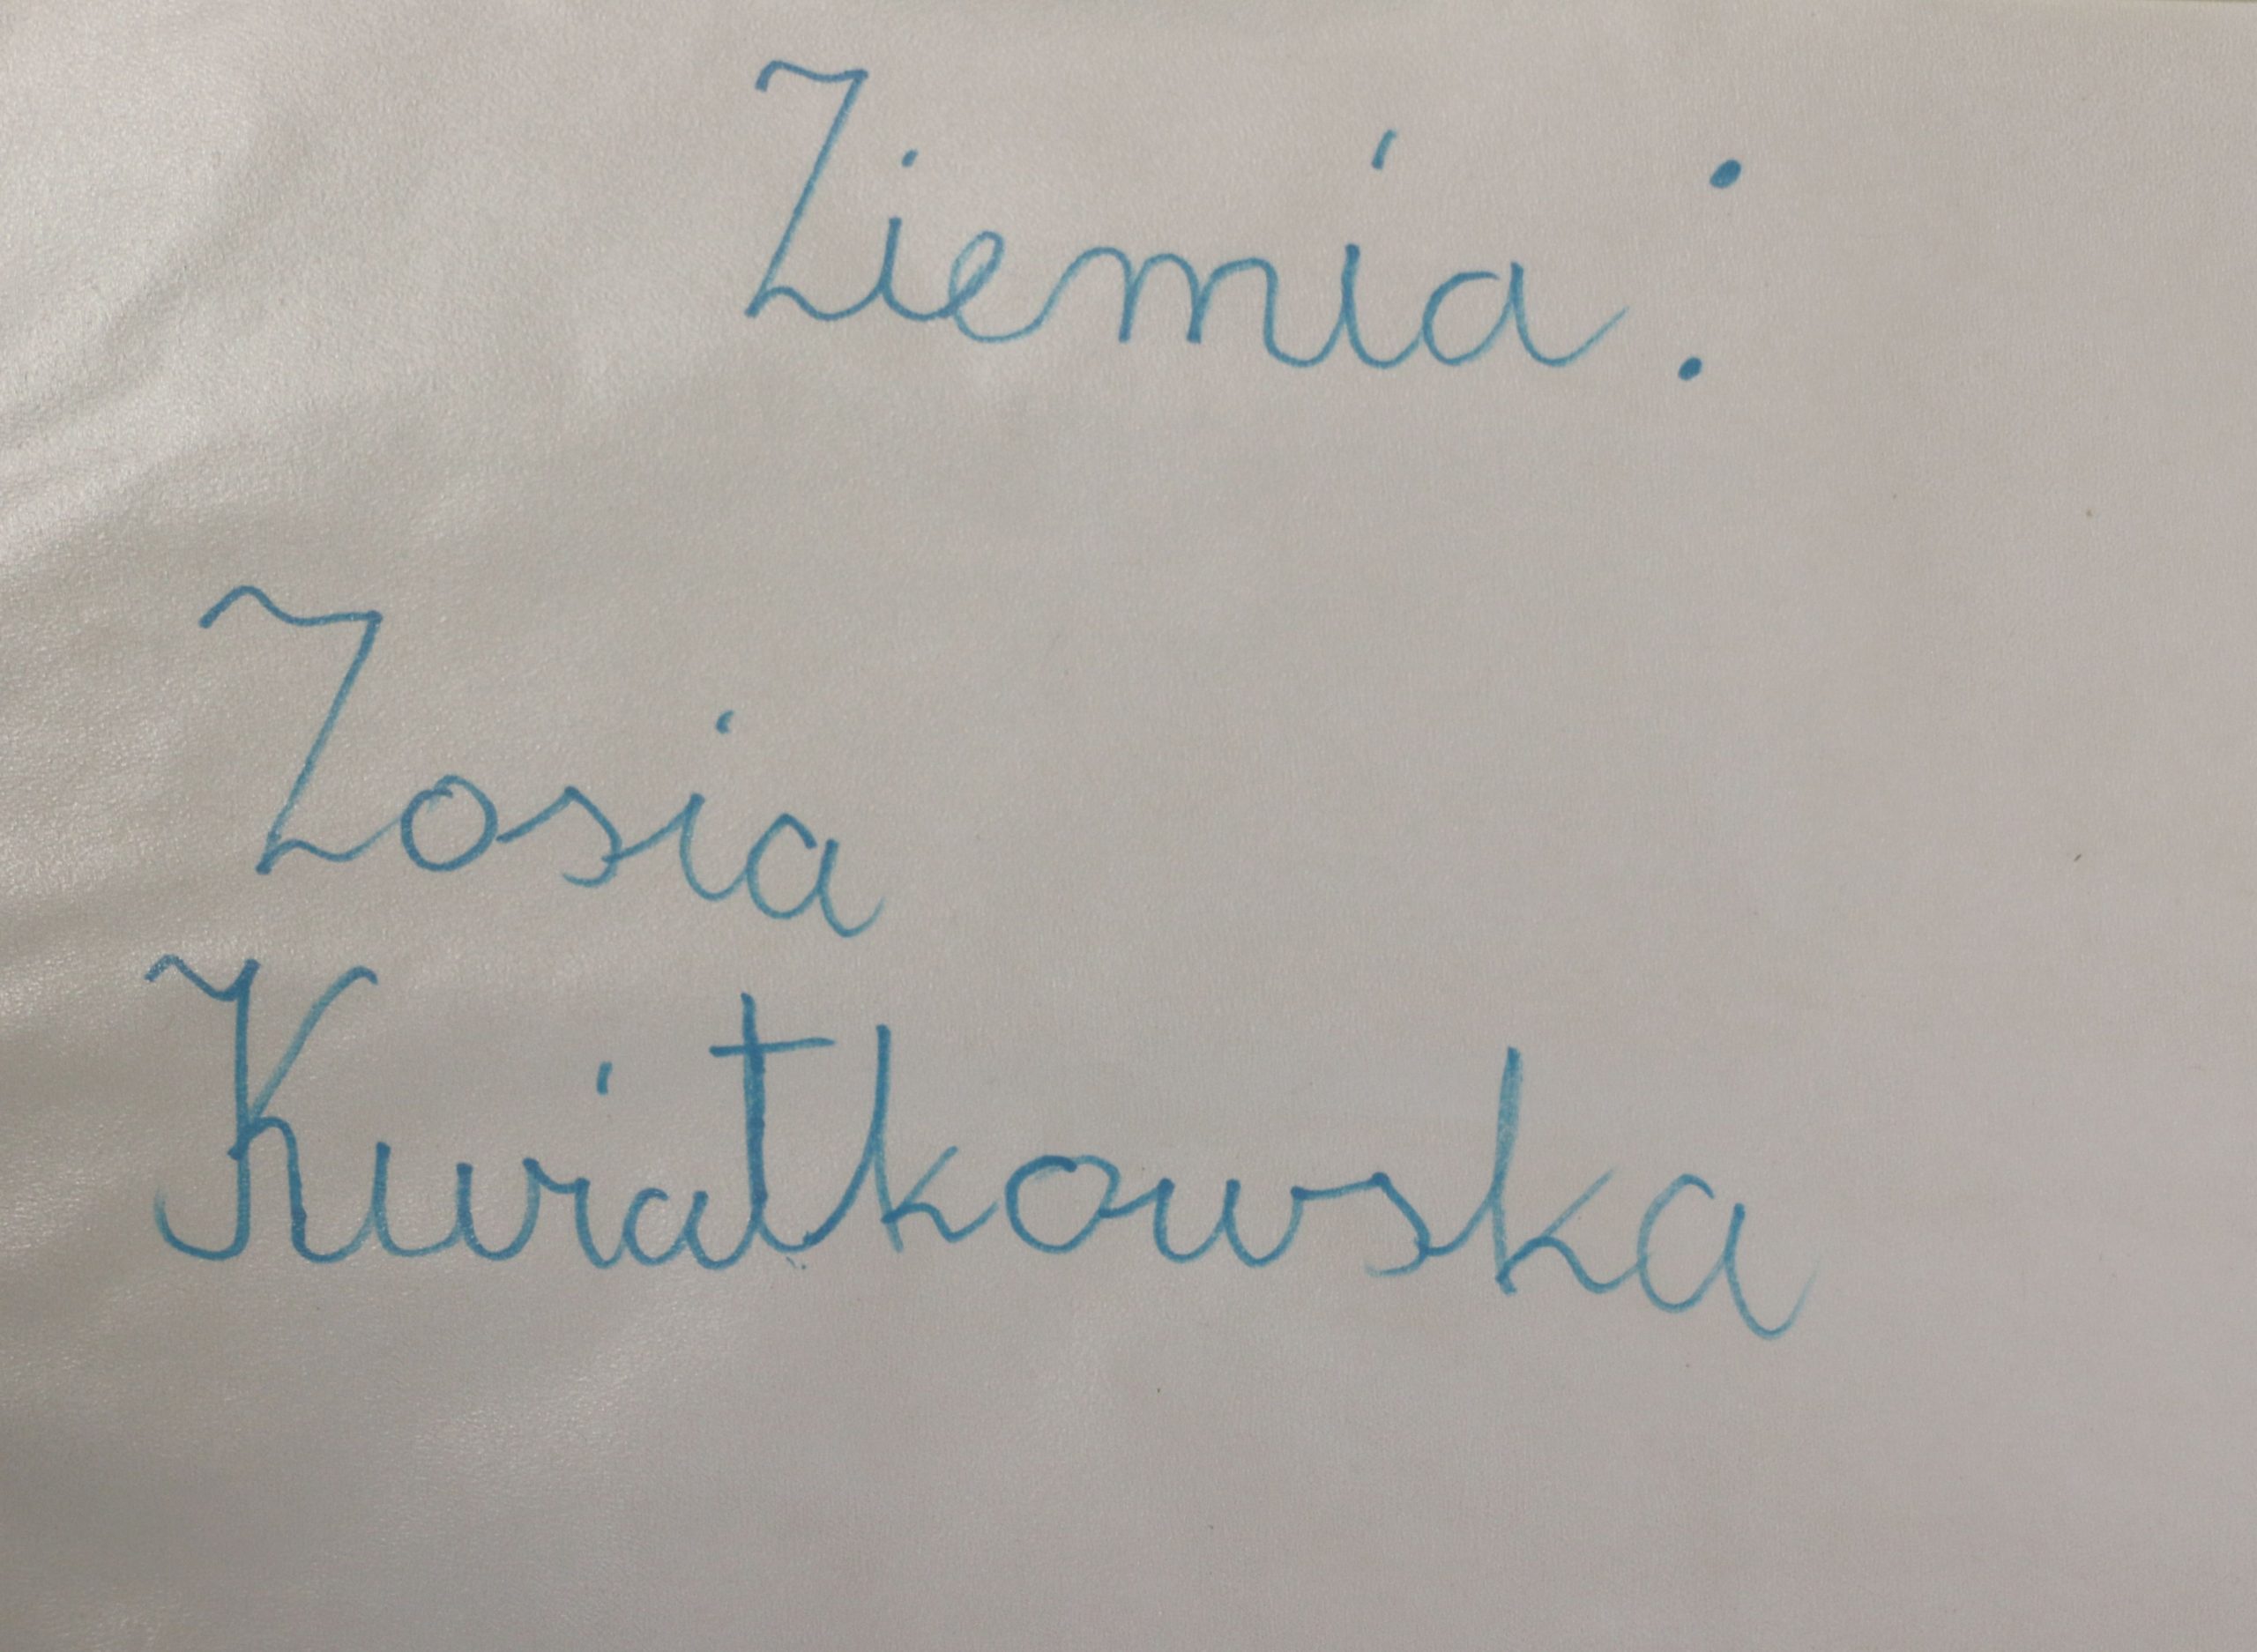 Ziemia:
Zosia
Kwiatkowska